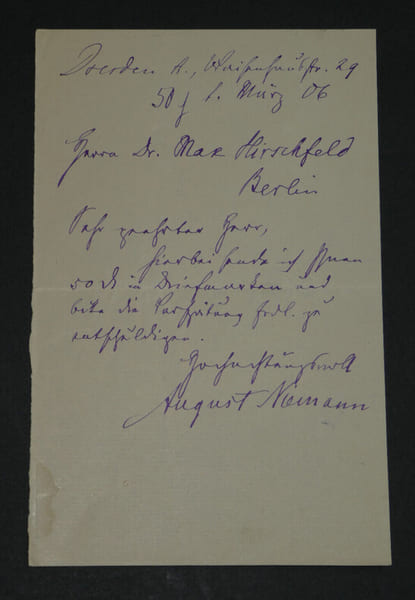 Dresden A., Waisenhausstr. 29
50 J 6. März 06
Herrn Dr. Max Hirschfeld
Berlin
Sehr geehrter Herr,
hierbei sende ich Ihnen
50 in Briefmarken und
bitte die Verspätung frdl. zu
entschuldigen.
Hochachtungsvoll
August Niemann